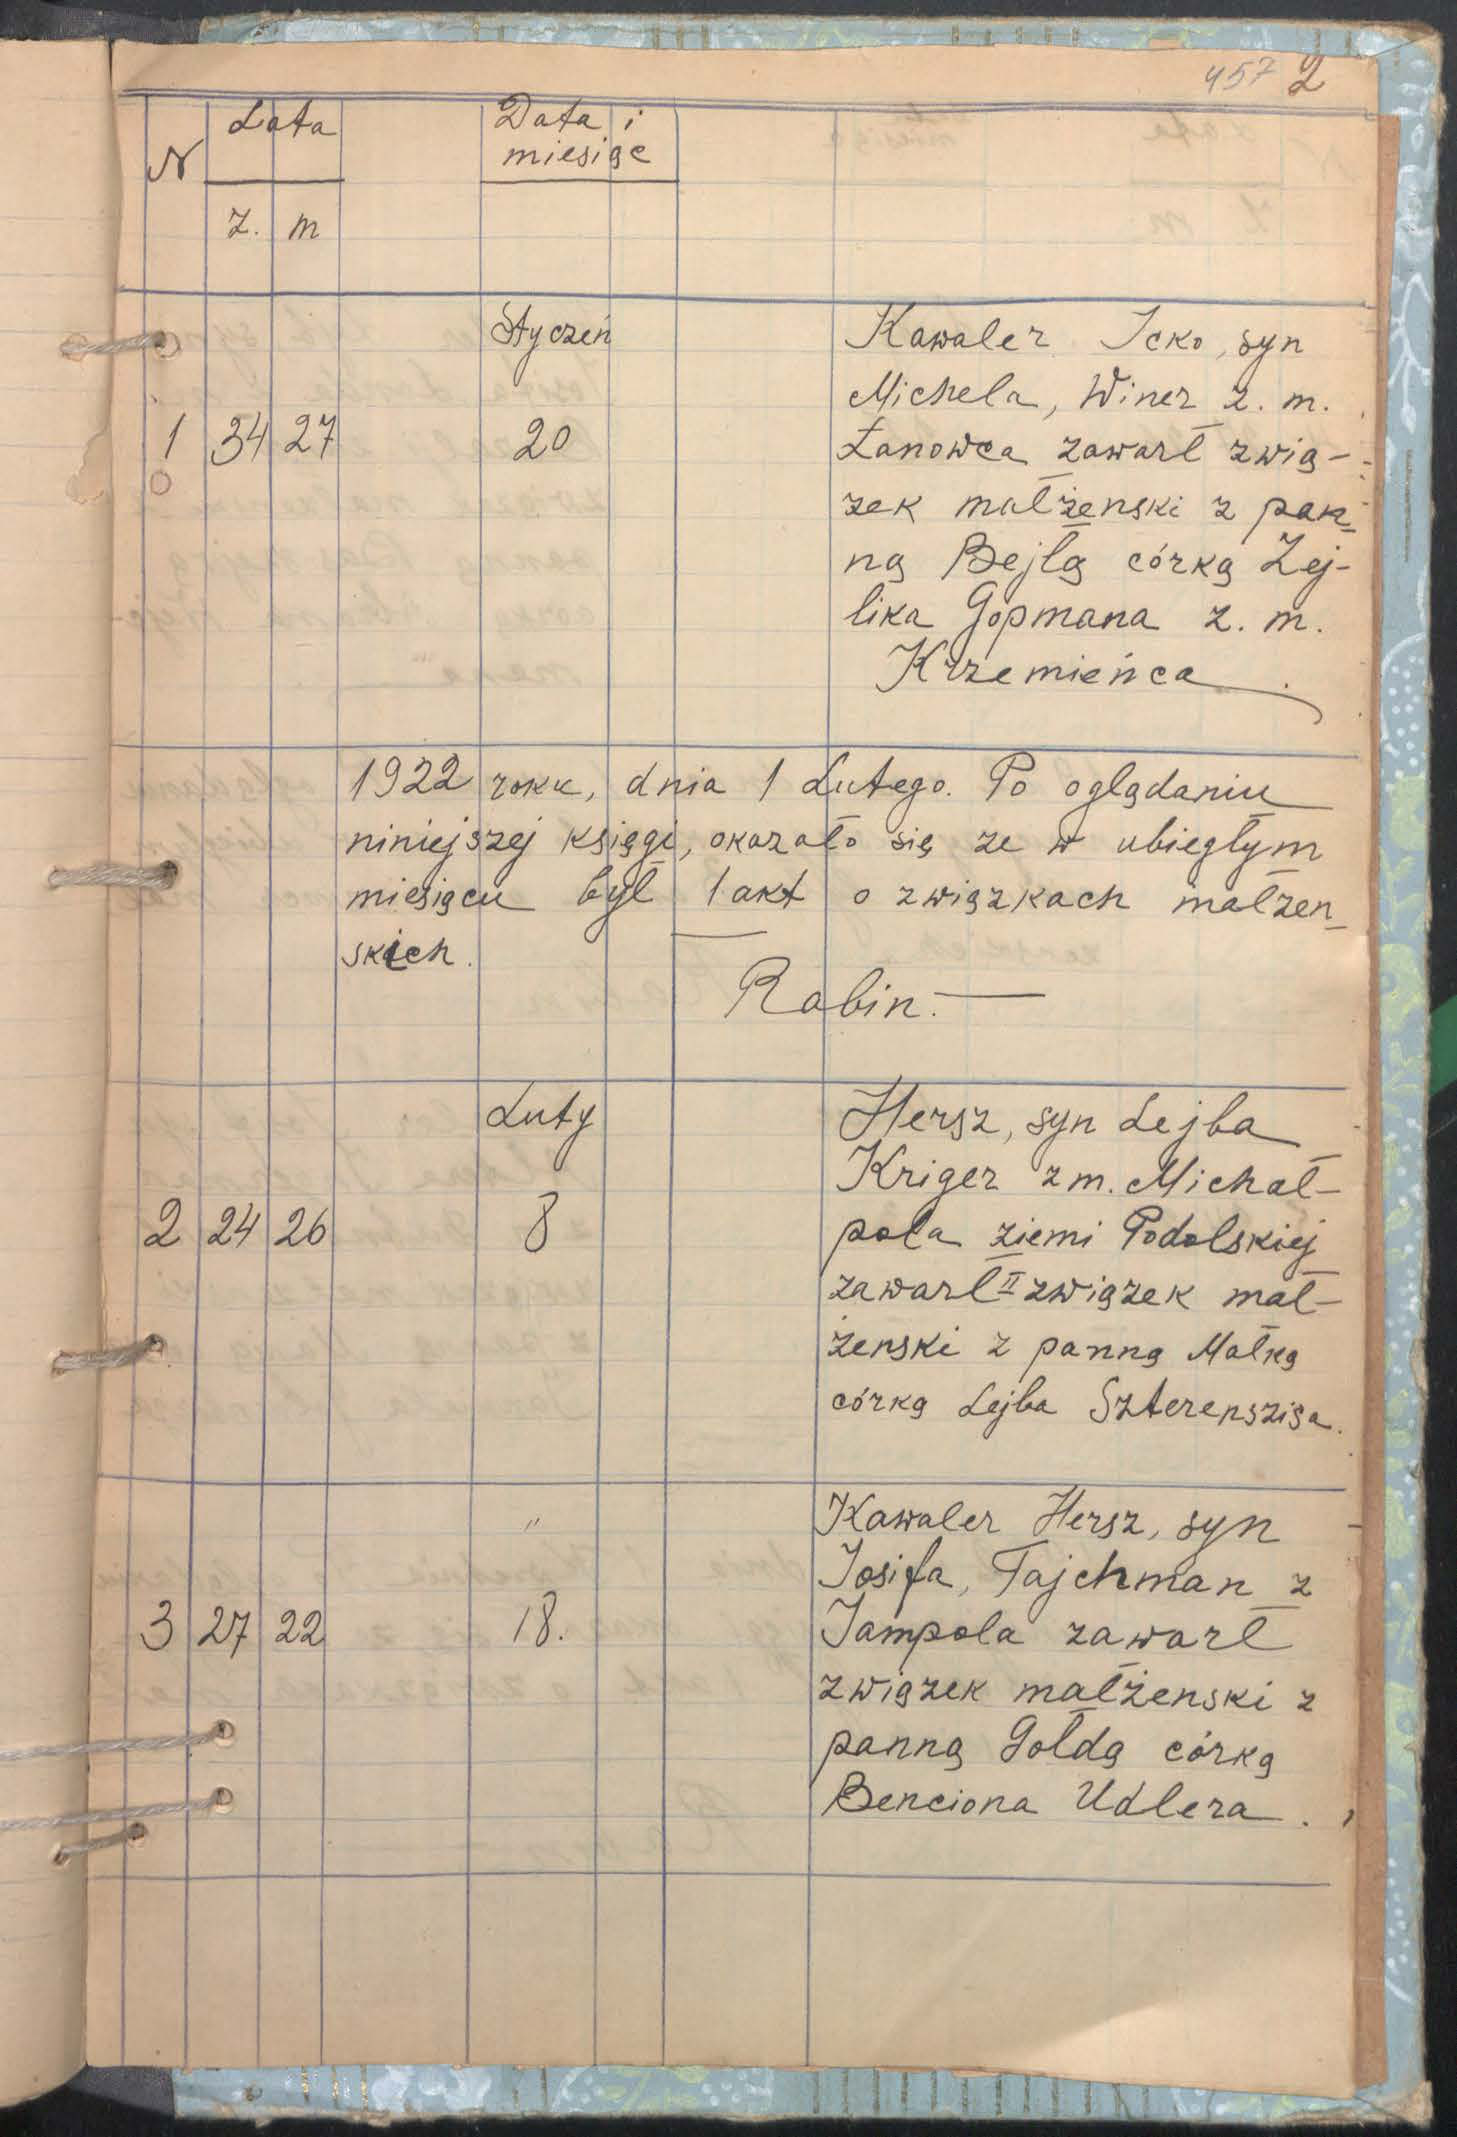 457 2
N Lata Data i
miesiąc
Z. m
Styczeń
1 34 27 20
Kawaler Icko, syn
Michela, Winer z. m.
Łanowca zawarł zwią-
zek małżenski z pan-
ną Bejłą córką Zej-
lika Gopmana z. m.
Krzemieńca.
1922 roku, dnia 1 Lutego. Po oglądaniu
niniejszej księgi, okazało się ze w ubiegłym
miesiącu był 1 akt o związkach małzen-
skich.
Rabin.
Luty
2 24 26 8
Hersz, syn Lejba
Kriger z m. Michał-
pola ziemi Podolskiej
zawarł II związek mał-
żenski z panną Małką
córką Lejba Szterenszisa.
3 27 22 " 18.
Kawaler Hersz, syn
Iosifa, Tajchman z
Jampola zawarł
związek małżenski z
panną Gołdą córką
Benciona Udlera.